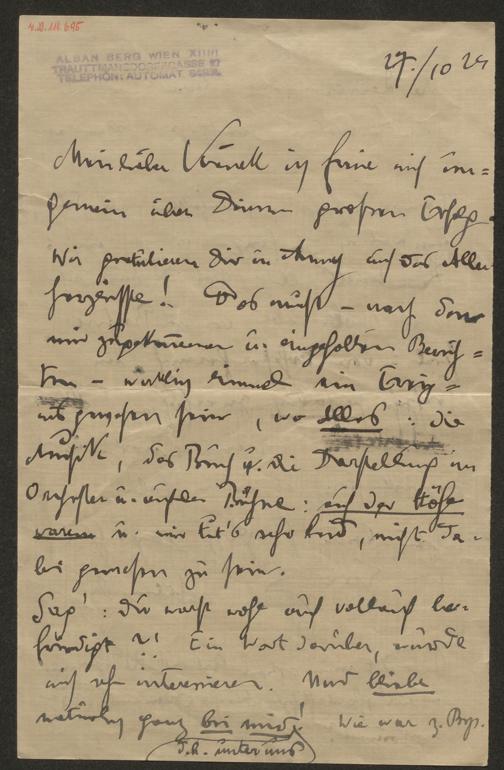 ALBAN BERG WIEN XIII/1
TRAUTTMANSDORFFGASSE 27
TELEPHON: AUTOMAT
27./10 24
Mein lieber Krenek ich freue mich un=
gemein über Deinen großen Erfolg.
Wir gratulieren Dir u. auf das Aller
herzlichste! Das muß – nach den
mir zugekommenen u. eingeholten Berich=
ten – wirklich einmal ein Ereig=
nis gewesen sein, wo alles: die
Musik, das Buch u. die Darstellung im
Orchester u. auf der Bühne: auf der Höhe
waren u. mir tut's sehr leid, nicht da=
bei gewesen zu sein.
Sag': du warst wohl auch vollauf be=
friedigt?! Ein Wort darüber, würde
mich sehr interessieren. Und bliebe
natürlich ganz bei mir! Wie war z. Bsp.
d.h. unter uns